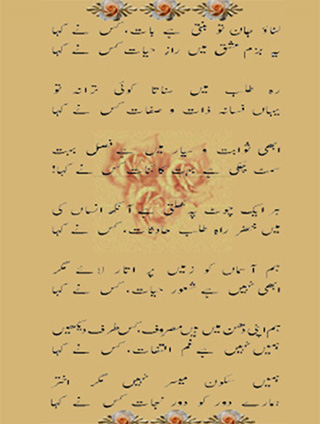 سناؤ بھان تو بنتی ہے بات، کس نے کہا
یہ بزم عشق میں راز حیات کس نے کہا
رہ طلب میں سناتا کوئی ترانہ تو
یہاں فسانۂ ذات و صفات کس نے کہا
ابھی ثوابت و سیار میں ہے فصل بہت
سمٹ چکی ہے بہت کائنات کس نے کہا؟
ہر ایک چوٹ پہ کھلتی ہے آنکھ انساں کی
میں خضر راہ طلب حادثات، کس نے کہا
ہم آسماں کو زمیں پر اتار لائے مگر
ابھی نہیں ہے شعور حیات، کس نے کہا
ہم اپنی دھن میں ہیں مصروف، کس طرف دیکھیں
ہمیں نہیں ہے غم التفات، کس نے کہا
ہمیں سکون میسر نہیں مگر اختر
ہمارے دور کو دور نجات کس نے کہا